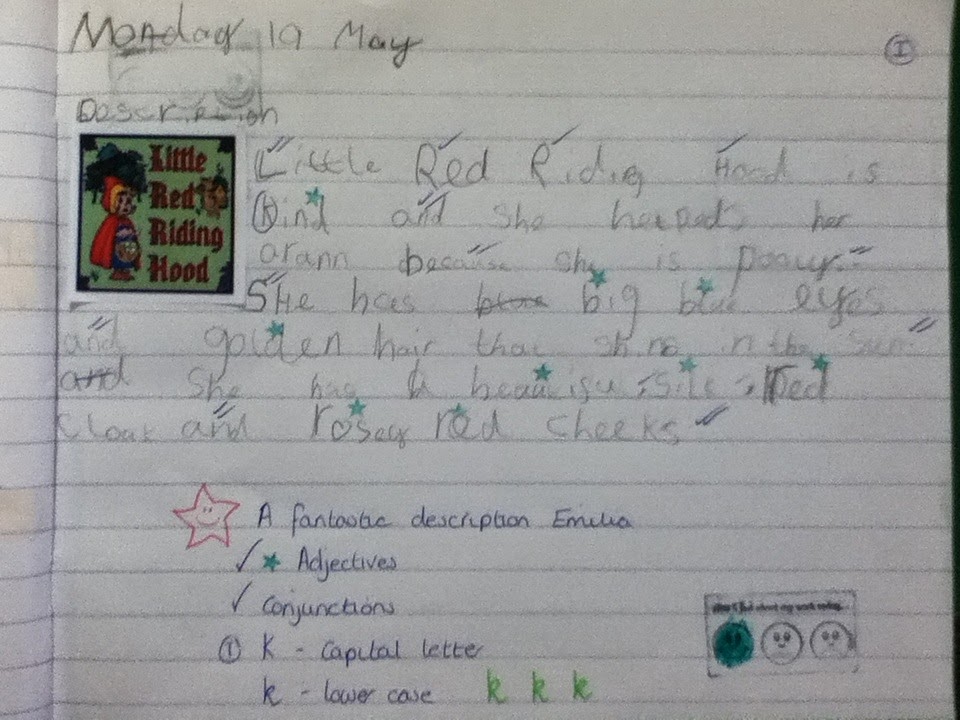 Monday 19 May
I
Description
Little
Red
Riding
Hood
Little Red Riding Hood is
Kind and she her
because she is
SHe has blue big blue eyes
and golden hair that in the sun
and She has a Red
Cloak and rosey red cheeks
A fantastic description Emilia
✓ ★ Adjectives
✓ Conjunctions
① K - Capital letter
k - lower case k k k